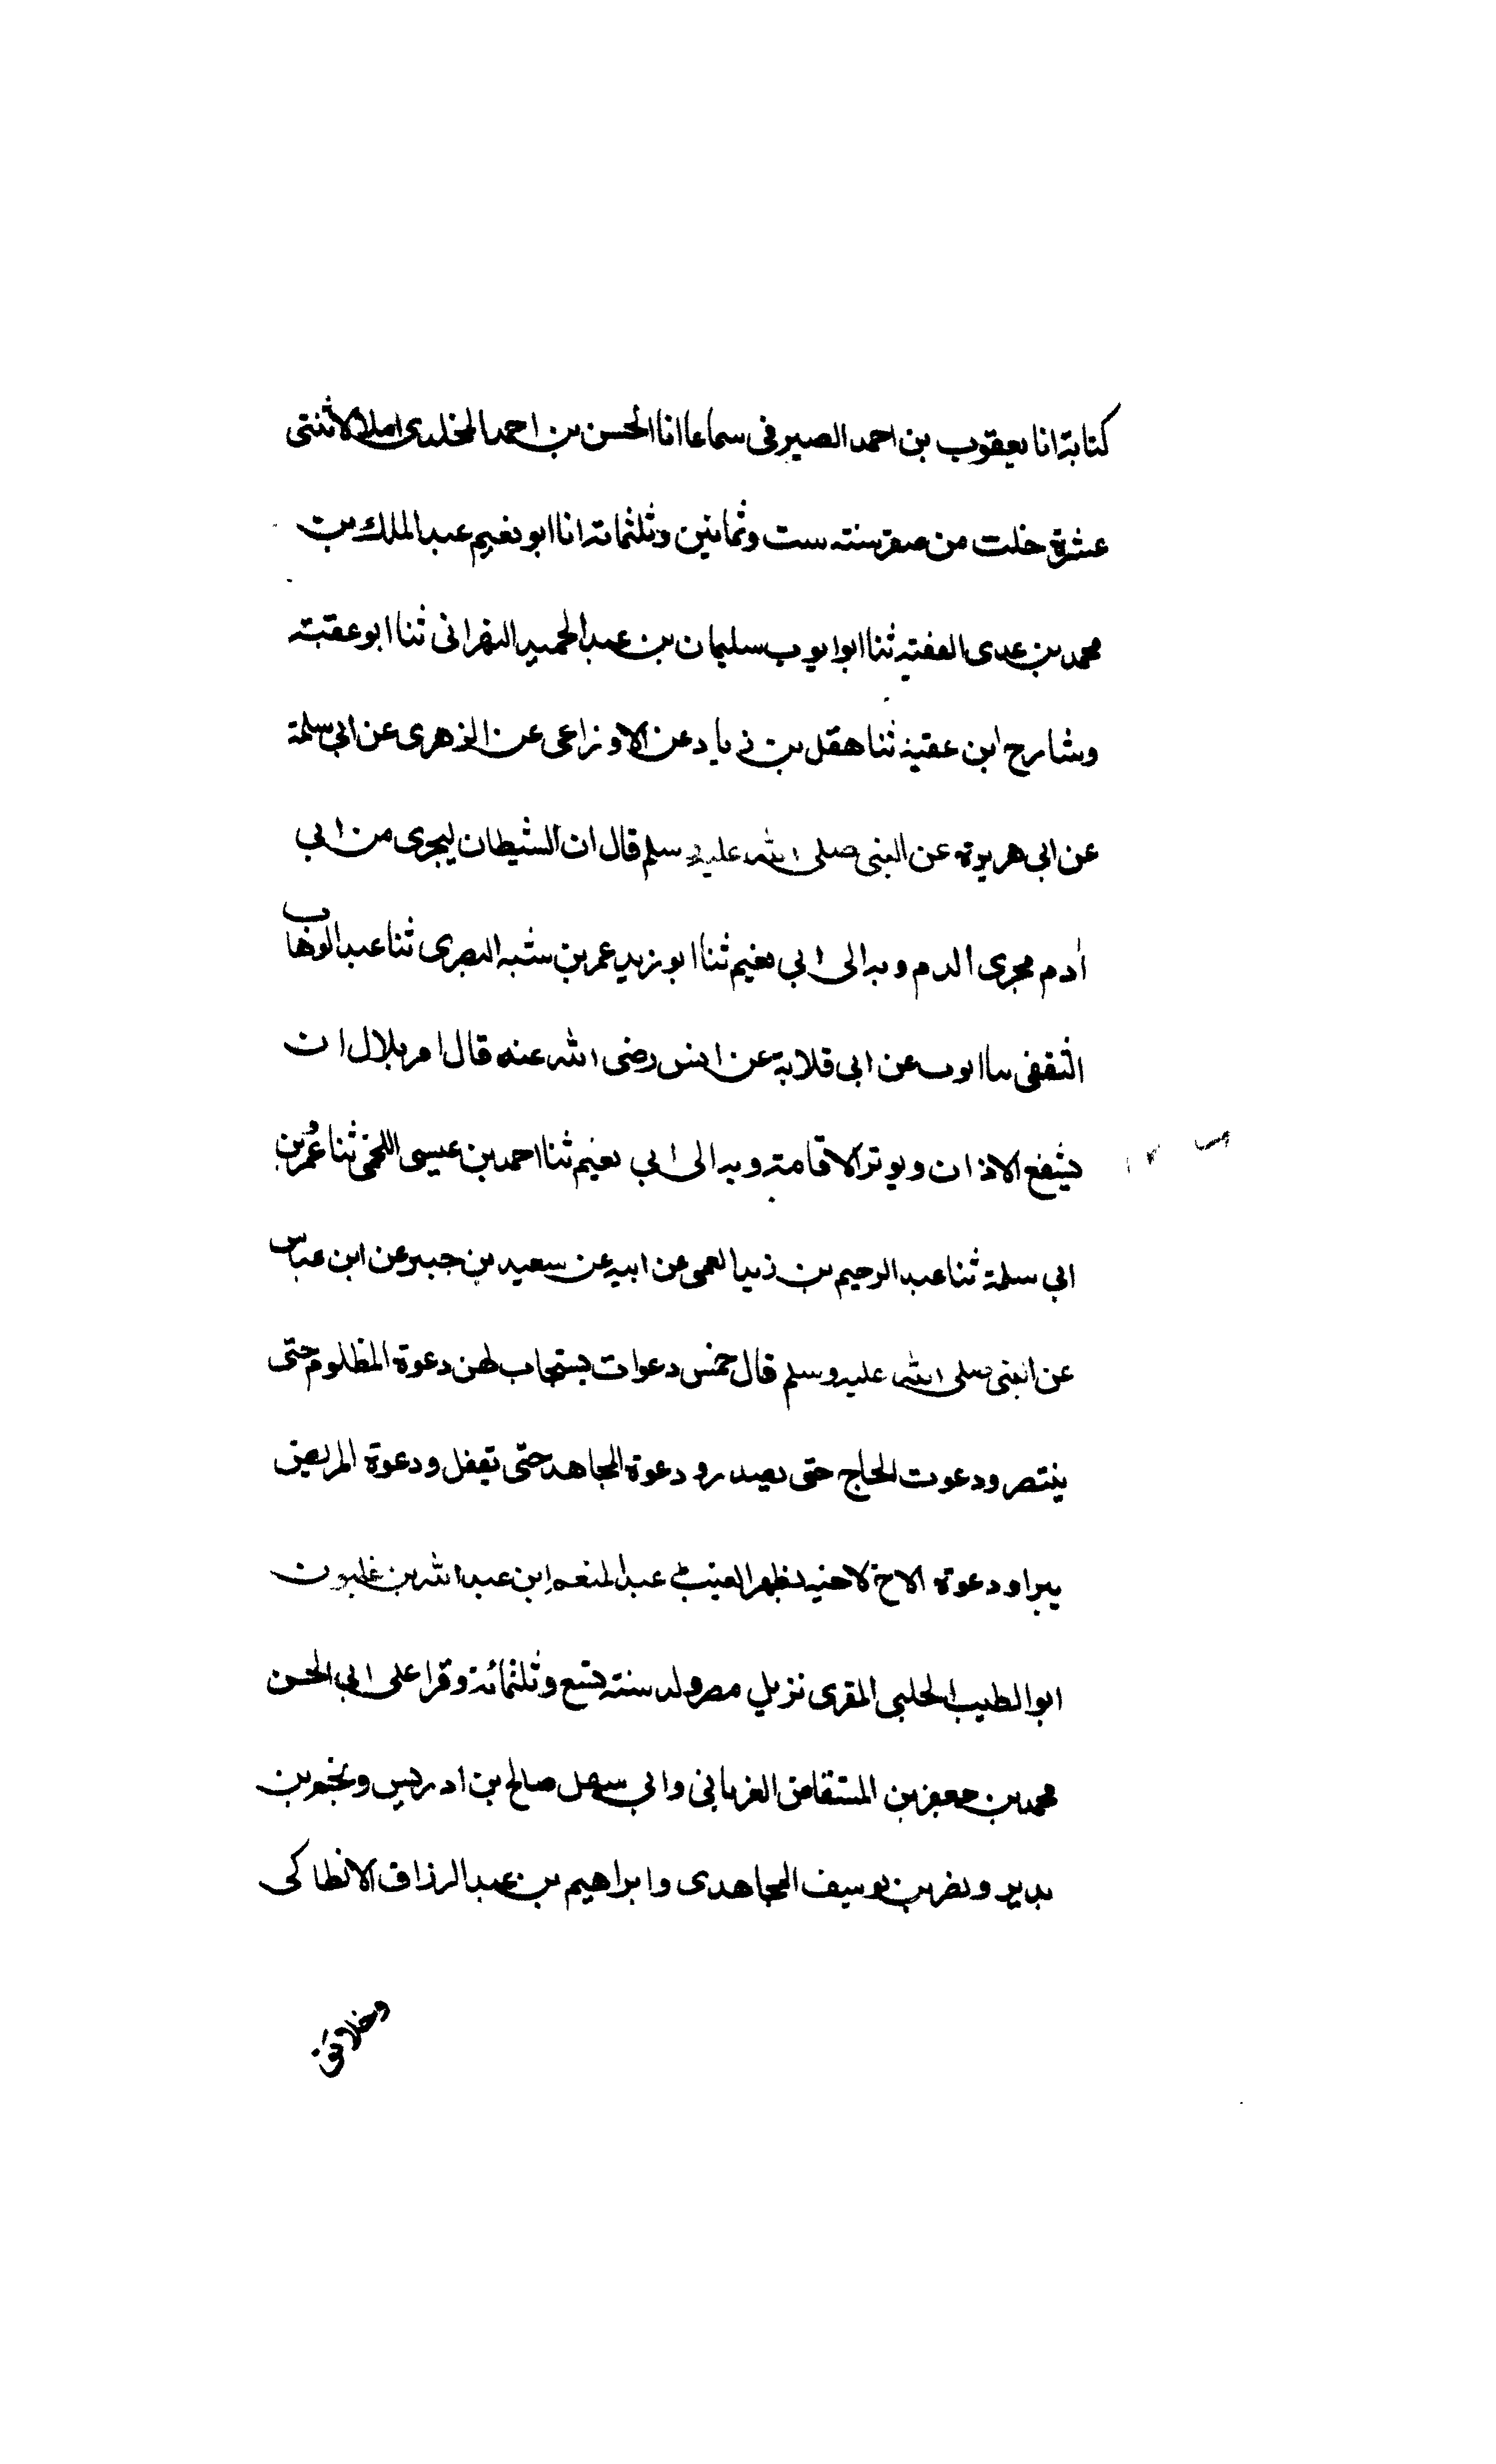 كتابة انا يعقوب بن احمد الصيرفى سماعا انا الحسن بن احمد المخلدى املا لاثنتى
عشرة خلت من صفر سنته ست وثمانين وثلثمائة انا ابو نعيم عبد الملك بن
محمد بن عدى الفقيه ثنا ابو ايوب سليمان بن عبد الحميد البهرانى ثنا ابو عقبته
وشارح ابن عقبة ثنا هقل بن زياد عن الاوزاعى عن الزهرى عن ابى سلمة
عن ابى هريرة عن النبى صلى الله عليه وسلم قال ان الشيطان ليجرى من ابى
أدم مجرى الدم وبه الى ابى نعيم ثنا ابو زيد عمر بن شبه البصرى ثنا عبد الوهاب
الثقفى سا ايوب عن ابى قلابة عن انس رضى الله عنه قال امر بلال ان
يشفع الاذان ويوتر الاقامته وبه الى ابى نعيم ثنا احمد بن عيسى اللخمى ثنا عُمر بن
ابى سلمة ثنا عبد الرحيم بن زيد العمى عن ابيه عن سعيد بن جبير عن ابن عباس
عن النبى صلى الله عليه وسلم قال خمس دعوات يستجاب لهن دعوة المظلوم حتى
ينتصر ودعوت الحاج حتى يصدر ودعوة المجاهد حتى يقفل ودعوة المريض
يبرا ودعوة الاخ لاخيه بظهر الغيب عبد المنعم ابن عبد الله بن غلبون
ابو الطيب الحلبى المقرى نزيل مصر ولد سنته تسع وثلثمائة وقرا على ابى الحسن
محمد بن جعفر بن المستفاض الفريابى وابى سهل صالح بن ادريس ونجم بن
بدير ونصر بن يوسف المجاهدى وابراهيم بن عبد الرزاق الانطاكى
وخلائق